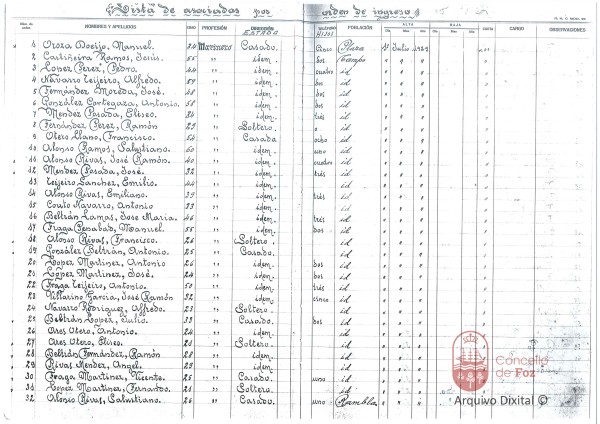 Lista de asociados por orden de ingreso
NOMBRES Y APELLIDOS EDAD PROFESIÓN ESTADO HIJOS POBLACIÓN ALTA BAJA CARGO OBSERVACIONES
Día Mes Año Día Mes Año
1 Oroza Doejo, Manuel. 34 Marinero Casado. Cinco Plaza 1º Julio 1929
2 Cartiñeira Ramos, Jesús. 55 " idem. dos Campo " " "
3 Lopez Perez, Pedro. 44 " idem. cuatro id " " "
4 Navarro Teijeiro, Alfredo. " idem. dos id " " "
5 Fernández Moreda, José. 48 " idem. dos id " " "
6 González Cortegaza, Antonio. 58 " idem. dos id " " "
7 Mendez Posada, Eliseo. 36 " idem. tres id " " "
8 Fernández Perez, Ramón 29 " Soltero. " id " " "
9 Otero Llano, Francisco. 54 " Casado ocho id " " "
10 Alonso Ramos, Salustiano. 60 " idem. uno id " " "
11 Alonso Rivas, José Ramón. 40 " idem. cuatro id " " "
12 Mendez Posada, José. 32 " idem. tres id " " "
13 Teijeiro Sanchez, Emilio. 44 " idem. id " " "
14 Alonso Rivas, Emiliano. 39 " idem. tres id " " "
15 Couto Navarro, Antonio 33 " idem. id " " "
16 Beltrán Lamas, Jose Maria. 46 " idem. tres id " " "
17 Fraga Penabad, Manuel. 55 " idem. dos id " " "
18 Alonso Rivas, Francisco. 26 " Soltero. id " " "
19 González Beltrán, Antonio. 25 " Casado. id " " "
20 Lopez Martinez, Antonio 26 " idem. dos id " " "
21 López Martinez, José. 24 " idem. dos id " " "
22 Fraga Teijeiro, Antonio. 50 " idem. tres id " " "
23 Villarino Garcia, José Ramón 32 " idem. cinco id " " "
24 Navarro Rodriguez, Alfredo. 23 " Soltero. id " " "
25 Beltrán Lopez, Julio. 33 " Casado. dos id " " "
26 Ares Otero, Antonio. 24 " idem. id " " "
27 Ares Otero, Eliseo. 21 " Soltero. id " " "
28 Beltrán Fernández, Ramón 28 " idem. id " " "
29 Rivas Mendez, Angel. 29 " idem. id " " "
30 Fraga Martinez, Vicente. 25 " Casado. uno id " " "
31 Lopez Martinez, Fernando. 26 " Soltero. id " " "
32 Alonso Rivas, Salustiano. 26 " Casado. uno Rambla " " "
Concello
de Foz
Arquivo Dixital ©